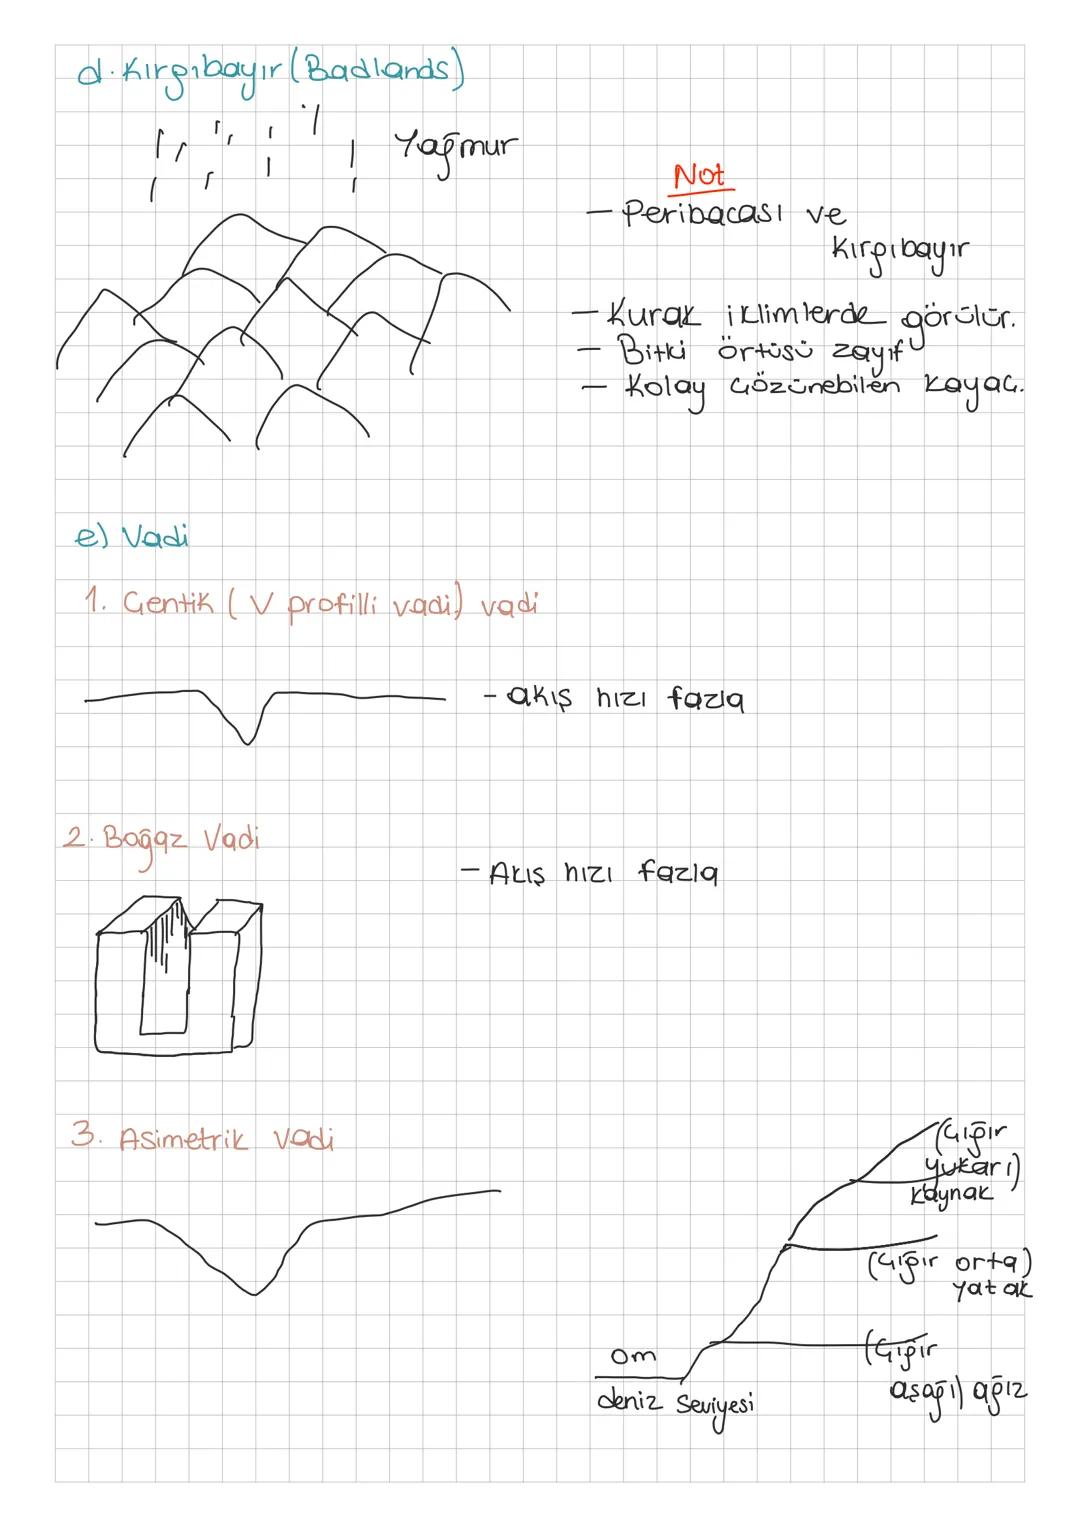 d. Kırgıbayır (Badlands)
Yağmur
Not
- Peribacası ve
Kırgıbayır
- Kurak iklimlerde görülür.
- Bitki örtüsü zayıf
- Kolay çözünebilen kayaç.
e) Vadi
1. Çentik ( V profilli vadi) vadi
- akış hızı fazla
2. Boğaz Vadi
- Akış hızı fazla
3. Asimetrik vadi
(Çığır
yukarı)
kaynak
(Çığır orta)
yatak
(Çığır
aşağı) ağız
0m
deniz seviyesi